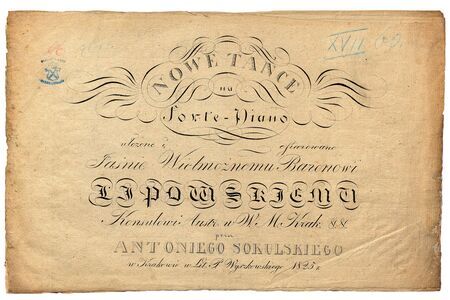 XVII
NOWE TAŃCE
na
Forte-Piano
ułożone i ofiarowane
Jaśnie Wielmożnemu Baronowi
LIPOWSKIEMU
Konsulowi Austr. w W. M. Krak. &&.
przez
ANTONIEGO SOKULSKIEGO
w Krakowie w Lit. P. Wyszkowskiego 1825 r.